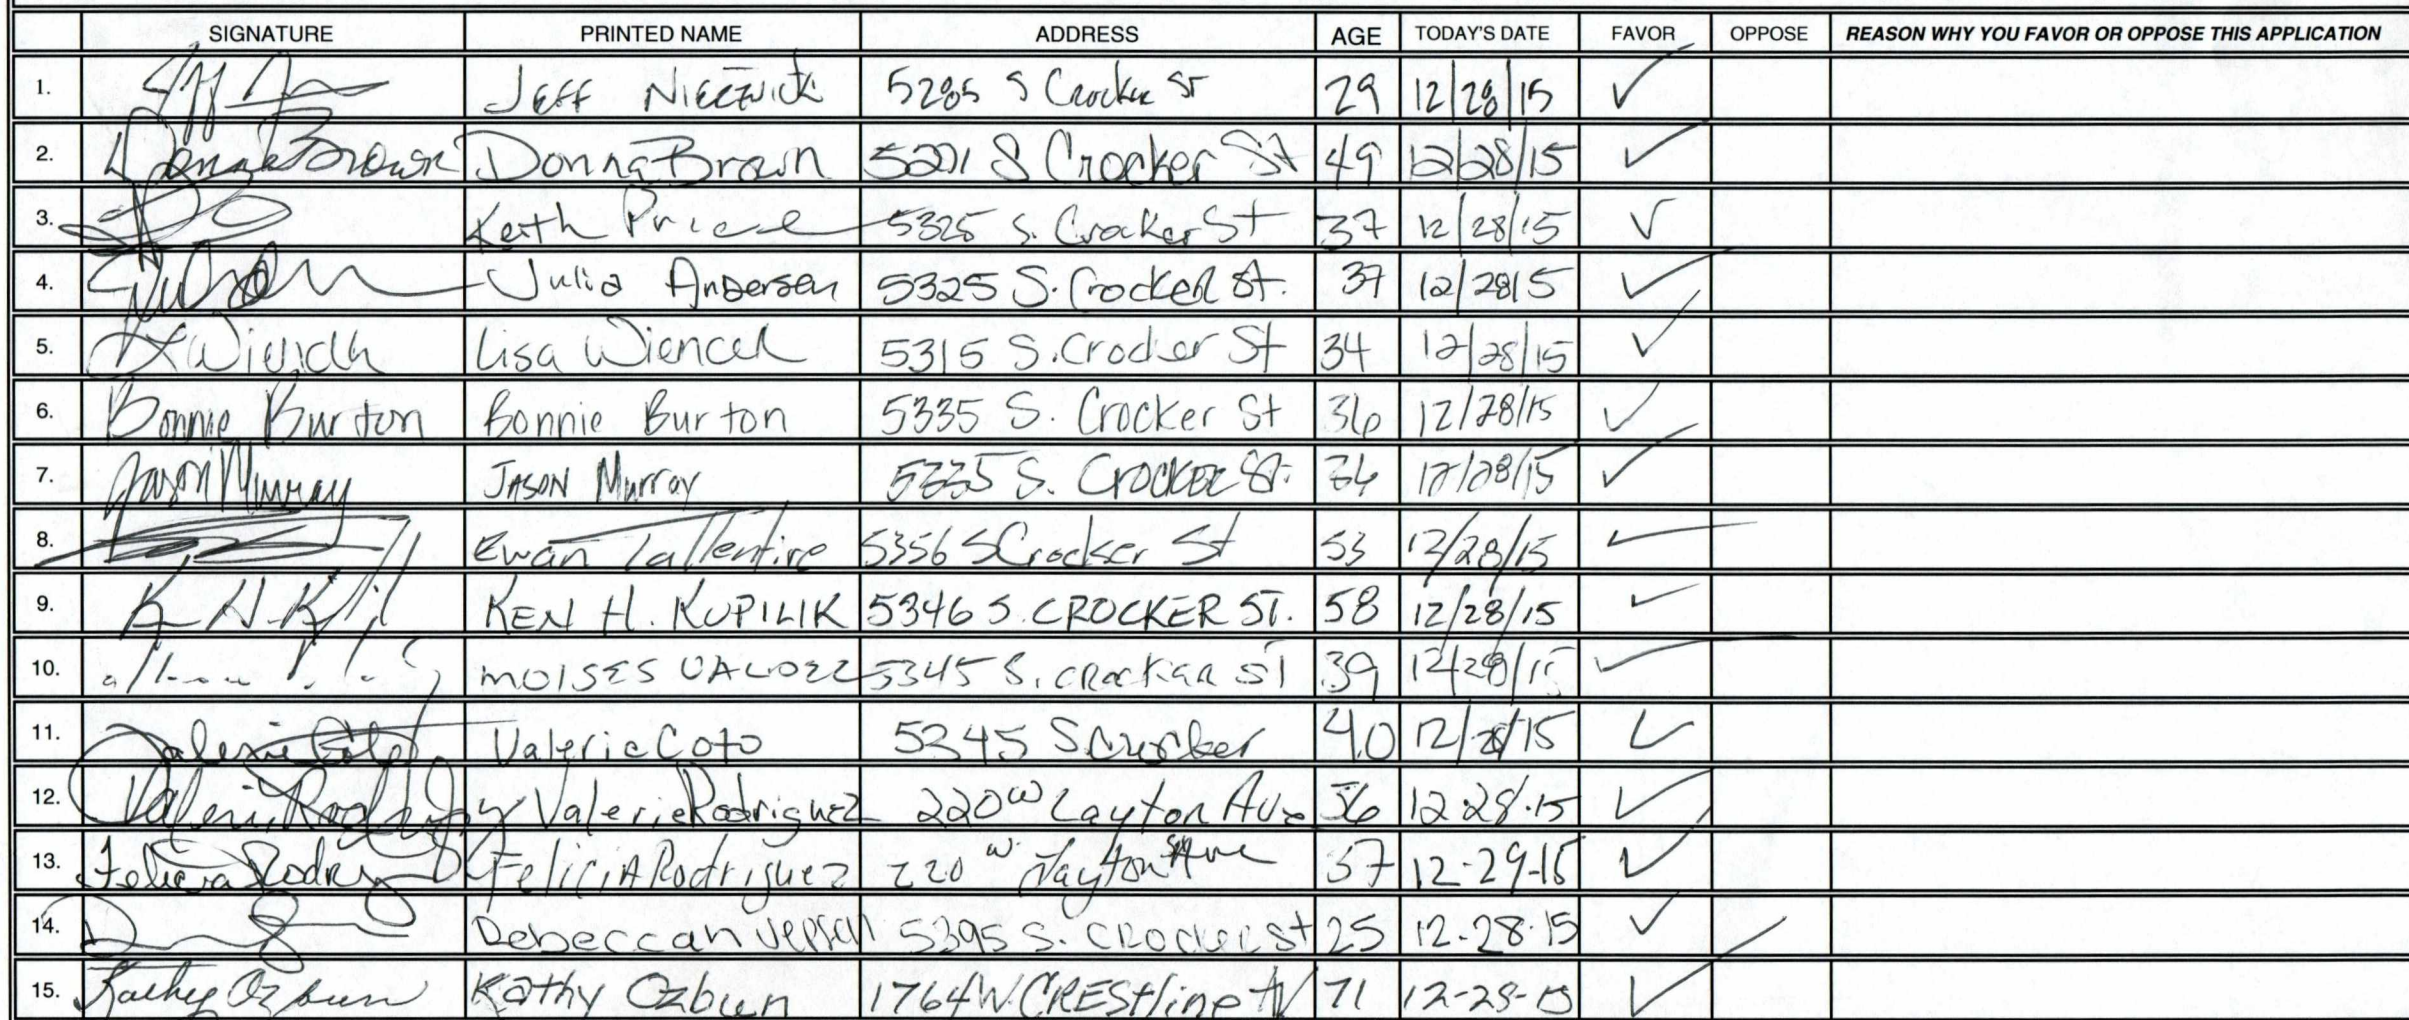 SIGNATURE PRINTED NAME ADDRESS AGE TODAY'S DATE FAVOR OPPOSE REASON WHY YOU FAVOR OR OPPOSE THIS APPLICATION
1. JEFF 5285 S Crocker ST 29 12/28/15 ✓
2. Donna Brown Donna Brown 5201 S Crocker St 49 12/28/15 ✓
3. Keith Price 5325 S. Crocker St 37 12/28/15 ✓
4. Julia Andersen 5325 S. Crocker St. 37 12/2815 ✓
5. L Wiencek Lisa Wiencek 5315 S. Crocker St 34 12/28/15 ✓
6. Bonnie Burton Bonnie Burton 5335 S. Crocker St 36 12/28/15 ✓
7. Jason Murray JASON Murray 5335 S. CROCKER St. 36 12/28/15 ✓
8. Ewan Tallentire 5356 S Crocker St 53 12/28/15 ✓
9. KEN H. KUPILIK 5346 S. CROCKER ST. 58 12/28/15 ✓
10. MOISES VALDEZ 5345 S. CROCKER ST 39 12/28/15 ✓
11. Valerie Coto Valerie Coto 5345 S Crocker 40 12/28/15 ✓
12. Valerie Rodriguez Valerie Rodriguez 220 W Layton Ave 36 12.28.15 ✓
13. Felicia Rodriguez FeliciA Rodriguez 220 W. Layton Ave 37 12-29-15 ✓
14. 5395 S. Crocker st 25 12-28-15 ✓
15. Kathy Ozbun Kathy Ozbun 1764 W. CREStline AV 71 12-28-15 ✓